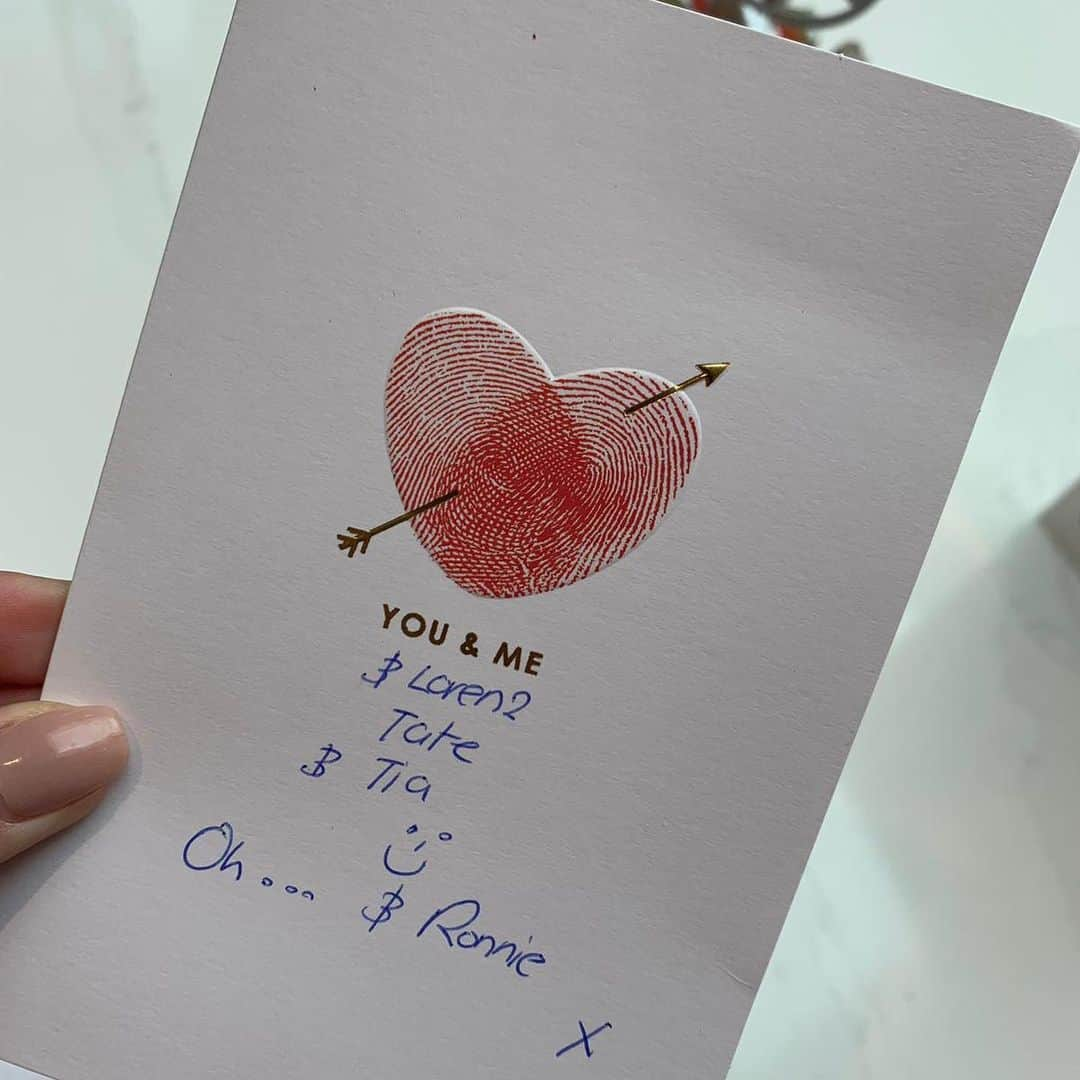 YOU & ME
$ Lorenz
Tate
$ Tia
Oh... $ Ronnie
X